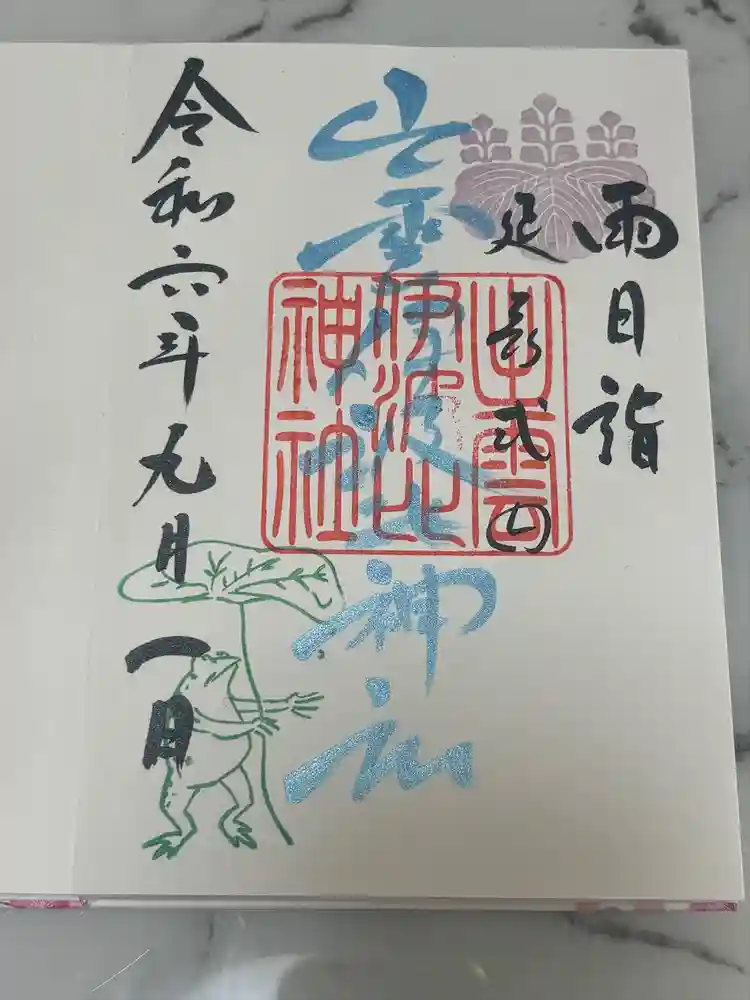 雨日詣
延喜式内
出雲伊波比神社
出雲
伊波比
神社
令和六年九月一日